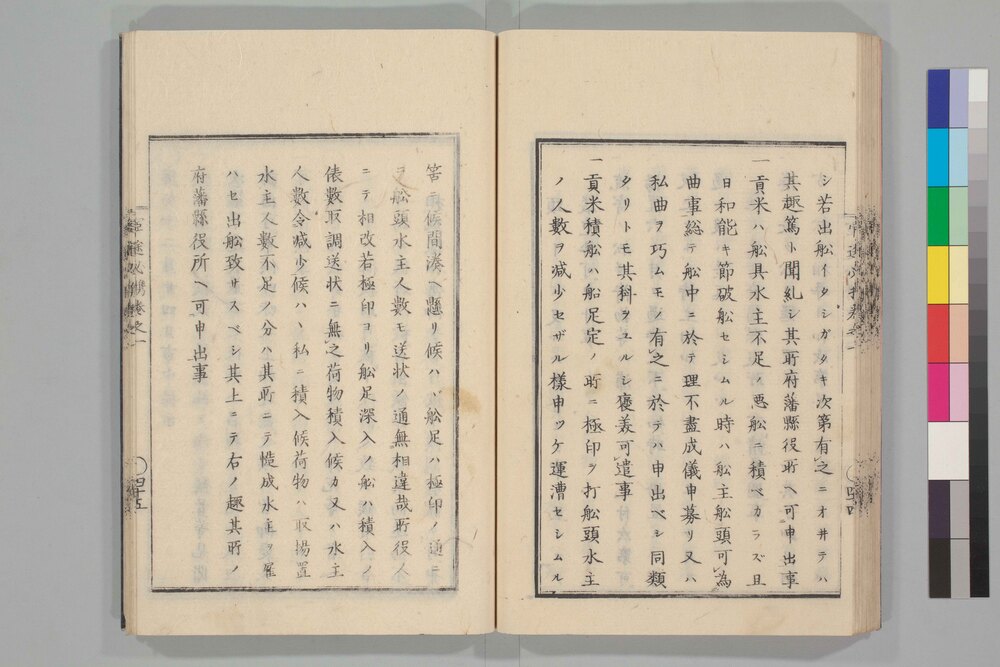 シ若出船イタシガタキ次第有之ニオ井テハ
其趣篤ト聞糺シ其所府藩縣役所ヘ可申出事
一貢米ハ船具水主不足ノ悪船ニ積ベカラズ且
日和能キ節破船セシムル時ハ船主船頭可為
曲事総テ船中ニ於テ理不盡成儀申募リ又ハ
私曲ヲ巧ムモノ有之ニ於テハ申出ベシ同類
タリトモ其科ヲユルシ褒美可遣事
一貢米積船ハ船足定ノ所ニ極印ヲ打船頭水主
ノ人數ヲ減少セザル様申ツケ運漕セシムル
四十四
筈ニ候間湊ヘ懸リ候ハヾ船足ハ極印ノ通ニ
ヲ船頭水主人數モ送状ノ通無相違哉所役人
ニテ相改若極印ヨリ船足深入ノ船ハ積入ノ
俵數取調送状ニ無之荷物積入候カ又ハ水主
人數令減少候ハヽ私ニ積入候荷物ハ取揚置
水主人數不足ノ分ハ其所ニテ慥成水主ヲ雇
ハセ出船致サスベシ其上ニテ右ノ趣其所ノ
府藩縣役所ヘ可申出事
四十五